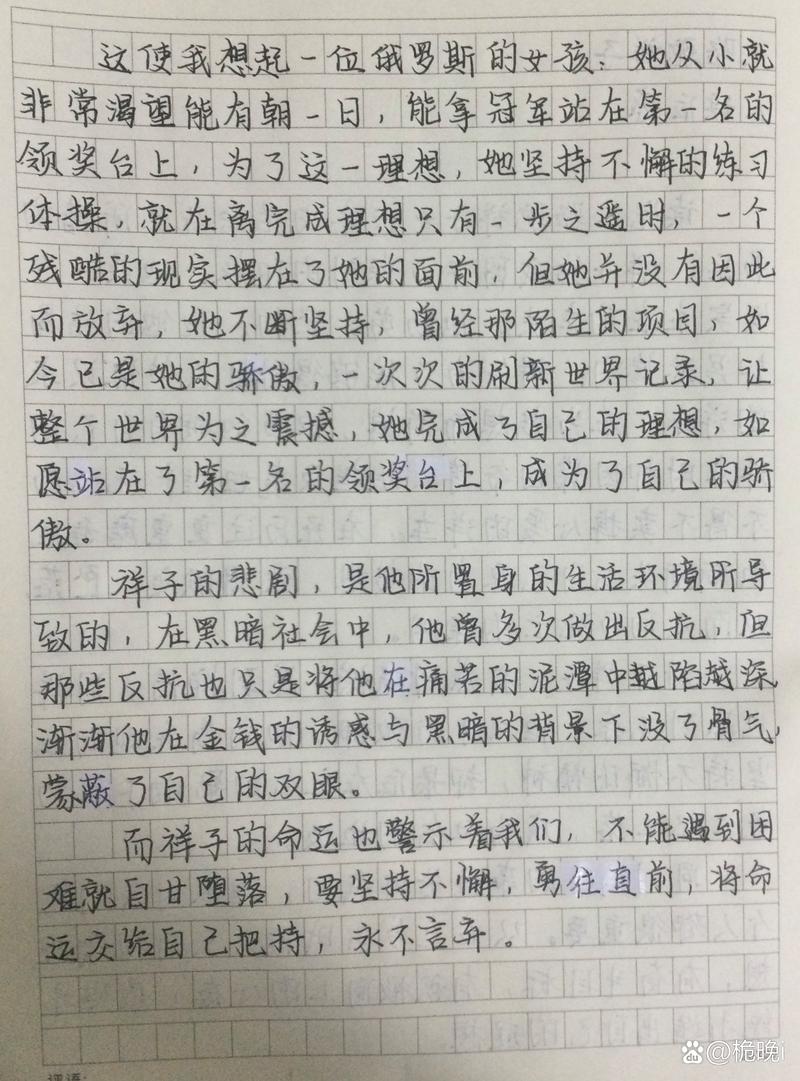 这使我想起一位俄罗斯的女孩：她从小就
非常渴望能有朝一日，能拿冠军站在第一名的
领奖台上，为了这一理想，她坚持不懈的练习
体操，就在离完成理想只有一步之遥时，一个
残酷的现实摆在了她的面前，但她并没有因此
而放弃，她不断坚持，曾经那陌生的项目，如
今已是她的骄傲，一次次的刷新世界记录，让
整个世界为之震撼，她完成了自己的理想，如
愿站在了第一名的领奖台上，成为了自己的骄
傲。
祥子的悲剧，是他所置身的生活环境所导
致的，在黑暗社会中，他曾多次做出反抗，但
那些反抗也只是将他在痛苦的泥潭中越陷越深，
渐渐他在金钱的诱惑与黑暗的背景下没了骨气，
蒙蔽了自己的双眼。
而祥子的命运也警示着我们，不能遇到困
难就自甘堕落，要坚持不懈，勇往直前，将命
运交给自己把持，永不言弃。
评语：
Bai du @桅晚i